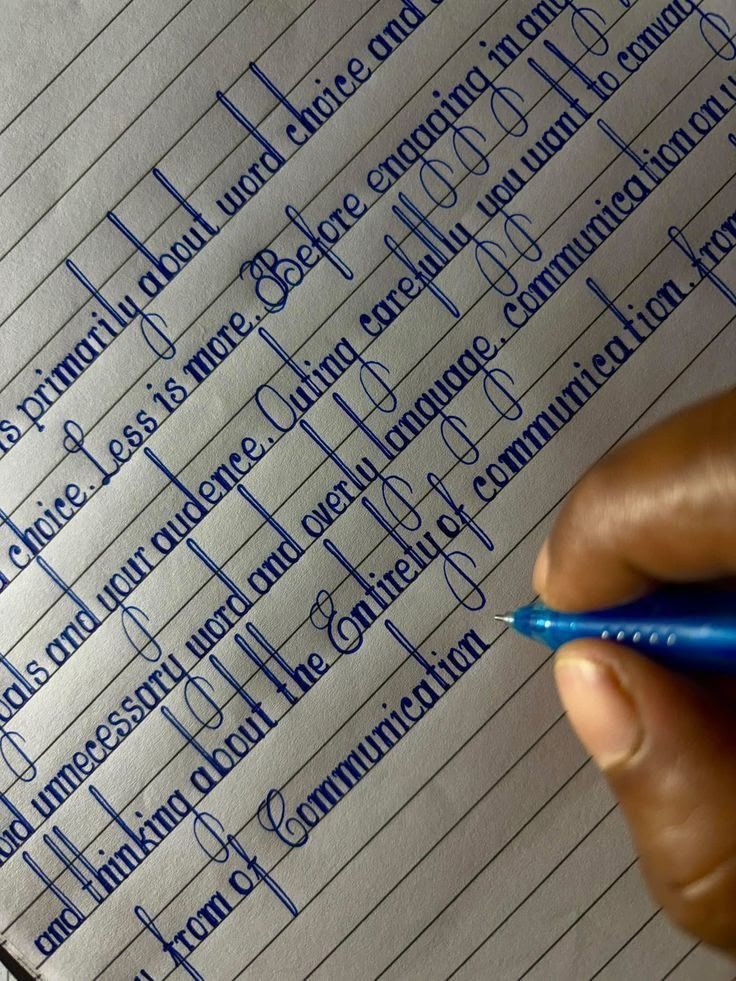 is primarily about word choice and
choice. Less is more. Before engaging in any
and your audence. Outing carefully you want to convay
unnecessary word and overly language. communication on
and thinking about the Entirely of communication. from
from of Communication